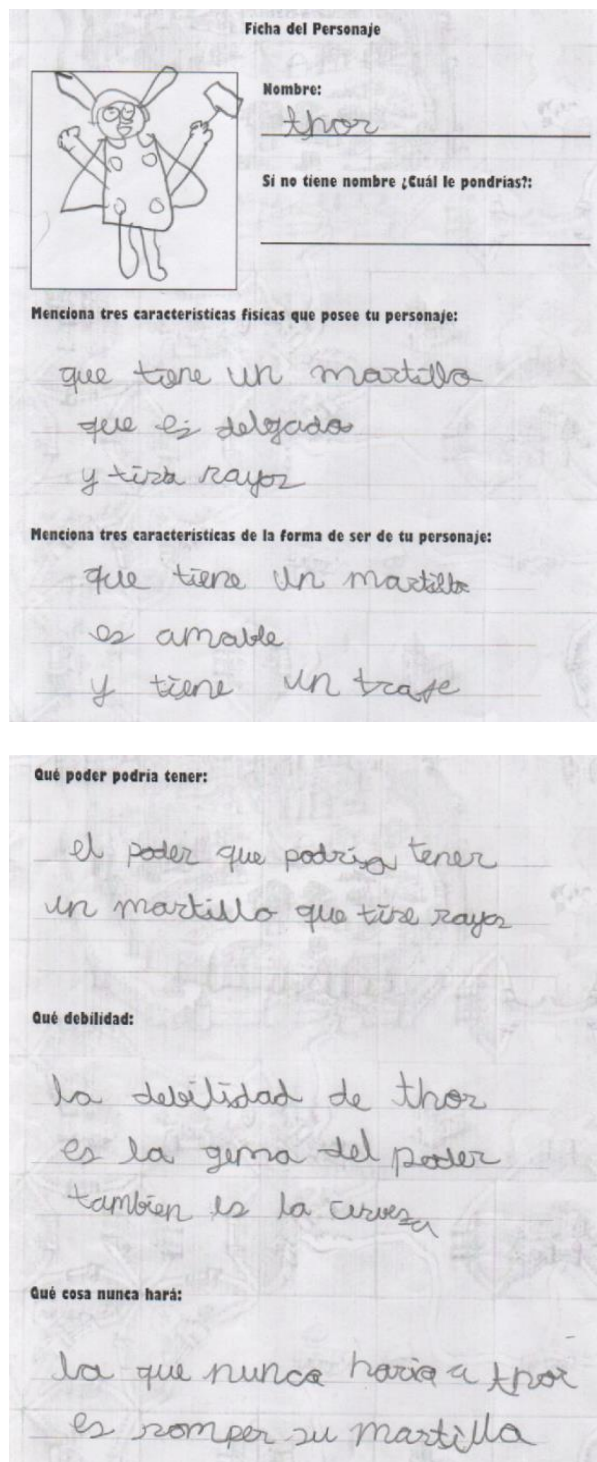 Ficha del Personaje
Nombre:
thor
Si no tiene nombre ¿Cuál le pondrías?:
Menciona tres características físicas que posee tu personaje:
que tiene un martillo
que es delgado
y tira rayos
Menciona tres características de la forma de ser de tu personaje:
que tiene un martillo
es amable
y tiene un traje
Qué poder podría tener:
el poder que podria tener
un martillo que tire rayos
Qué debilidad:
la debilidad de thor
es la gema del poder
tambien es la cerveza
Qué cosa nunca hará:
la que nunca haria a thor
es romper su martillo